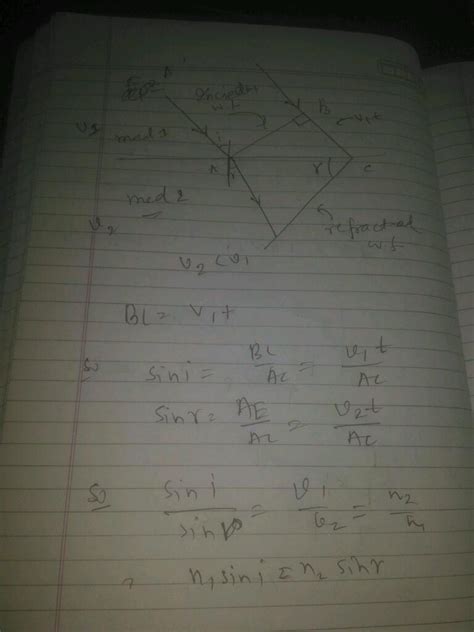 A'
Incident
w f
B
v₁t
v₁
med 1
i
A
r
C
med 2
v₂
refracted
w f
v₂ < v₁
BC = v₁ t
so
sin i = BC/AC = v₁ t/AC
sin r = AE/AC = v₂ t/AC
so sin i/sin r = v₁/v₂ = n₂/n₁
n₁ sin i = n₂ sin r